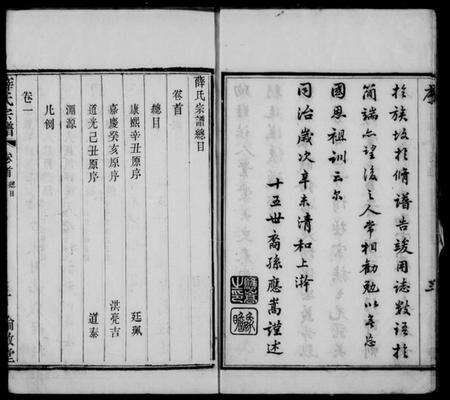 於族故於修譜告竣用誌數語於
簡端亦望後之人常相勸勉以無忘
國恩祖訓云尔
同治歲次辛未清和上澣
十五世裔孫應嵩謹述
薛氏宗譜總目
卷首
總目
康熙辛丑原序 廷珮
嘉慶癸亥原序 洪亮吉
道光己丑原序 道泰
溯源
凡例
卷一
薛氏宗譜 卷首 總目